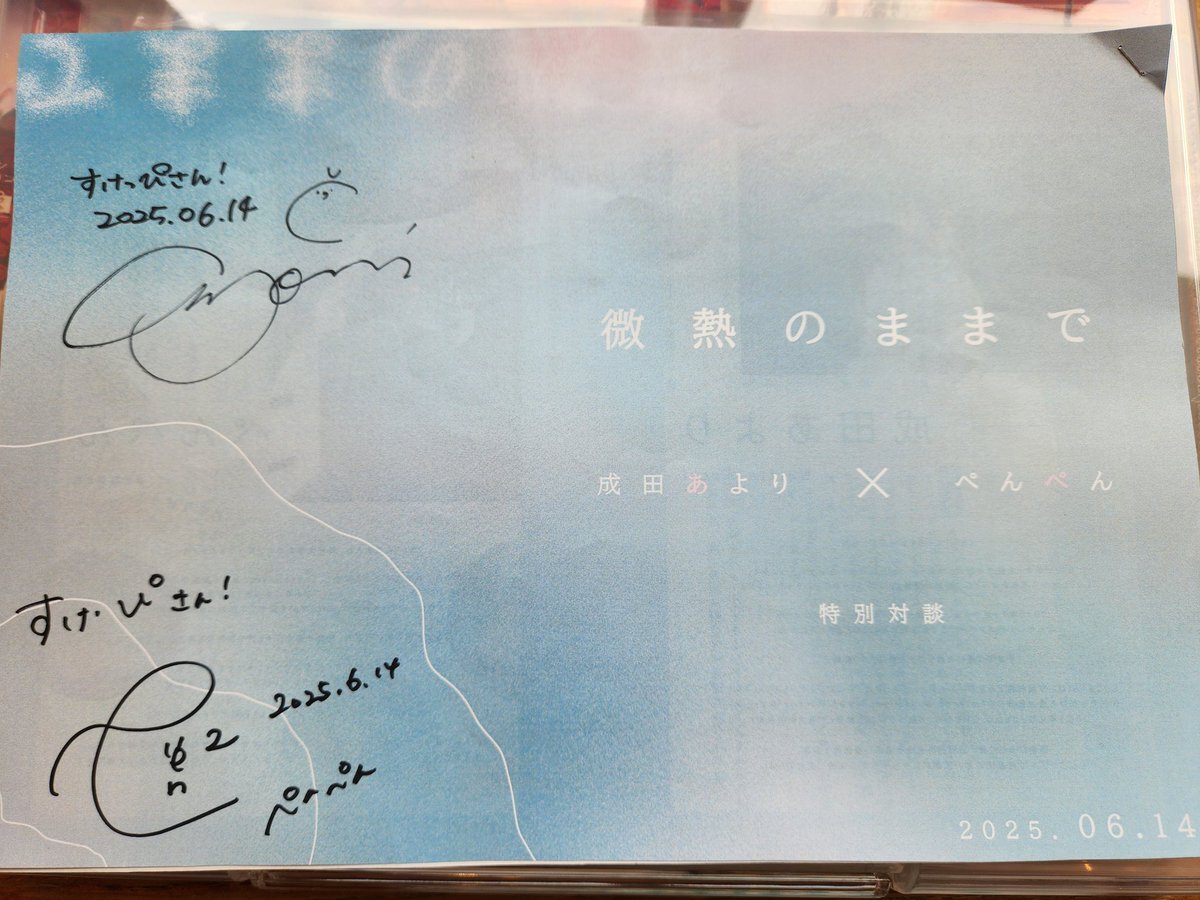 すけっぴさん!
2025.06.14
微熱のままで
成田あより × ぺんぺん
特別対談
すけっぴさん!
2025.6.14
ぺんぺん
2025.06.14